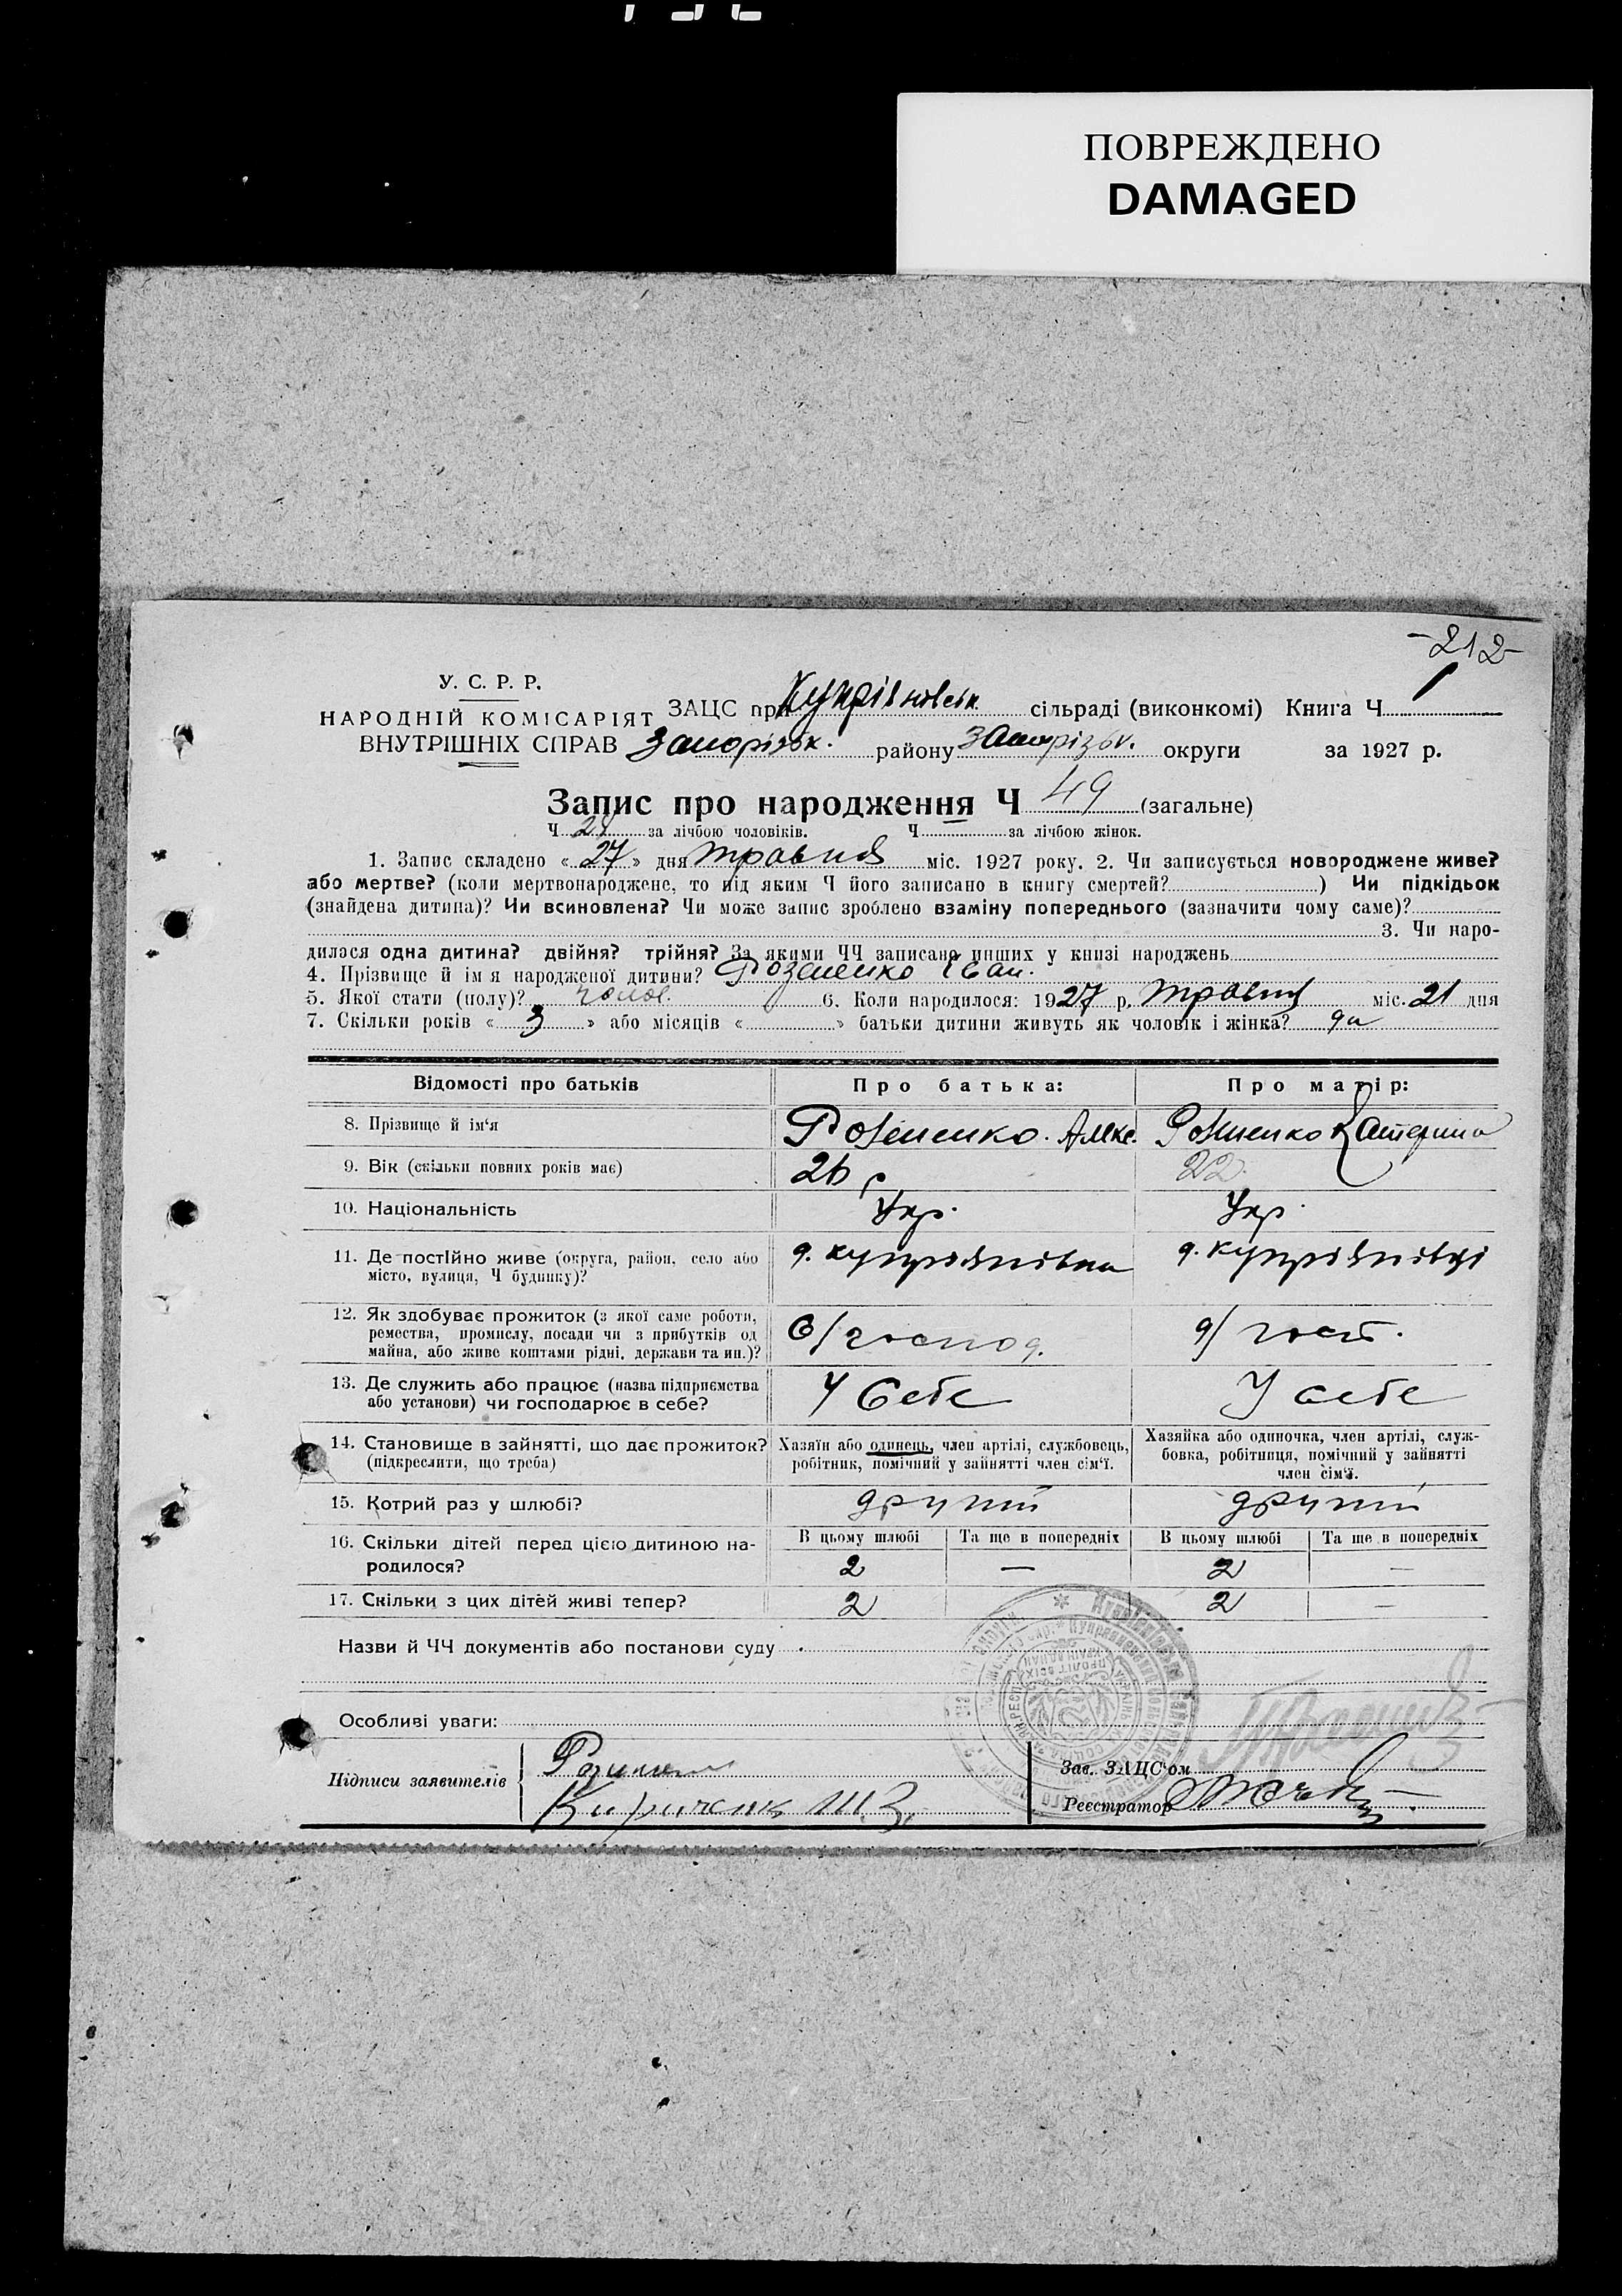 ПОВРЕЖДЕНО
DAMAGED
-212-
У. С. Р. Р.
НАРОДНІЙ КОМІСАРІЯТ
ВНУТРІШНІХ СПРАВ
ЗАЦС при сільраді (виконкомі) Книга Ч 1
Запорізьк. району Запорізьк. округи за 1927 р.
Запис про народження Ч 49 (загальне)
Ч за лічбою чоловіків. Ч за лічбою жінок.
1. Запис складено « 27 » дня травня міс. 1927 року. 2. Чи записується новороджене живе?
або мертве? (коли мертвонароджене, то під яким Ч його записано в книгу смертей? ) Чи підкідьок
(знайдена дитина)? Чи всиновлена? Чи може запис зроблено взаміну попереднього (зазначити чому саме)?
3. Чи наро-
дилася одна дитина? двійня? трійня? За якими ЧЧ записано инших у книзі народжень
4. Прізвище й ім я народженої дитини? Іван.
5. Якої стати (полу)? чолов. 6. Коли народилося: 1927 р. травня міс. 21 дня
7. Скільки років « 3 » або місяців « » батьки дитини живуть як чоловік і жінка? да
Відомості про батьків Про батька: Про матір:
8. Прізвище й ім'я Алкс. Катерина
9. Вік (скільки повних років має) 26 р 22
10. Національність Укр. Укр.
11. Де постійно живе (округа, район, село або
місто, вулиця, Ч будинку)?
12. Як здобуває прожиток (з якої саме роботи,
ремества, промислу, посади чи з прибутків од
майна, або живе коштами рідні, держави та ин.)?
с/господ. д/госп.
13. Де служить або працює (назва підприємства
або установи) чи господарює в себе?
У себе У себе
14. Становище в зайнятті, що дає прожиток?
(підкреслити, що треба)
Хазяїн або одинець, член артілі, службовець,
робітник, помічний у зайнятті член сім'ї.
Хазяйка або одиночка, член артілі, служ-
бовка, робітниця, помічний у зайнятті
член сім'ї.
15. Котрий раз у шлюбі? другий другий
16. Скільки дітей перед цією дитиною на-
родилося?
В цьому шлюбі Та ще в попередніх В цьому шлюбі Та ще в попередніх
2 — 2 —
17. Скільки з цих дітей живі тепер? 2 2 —
Назви й ЧЧ документів або постанови суду
Особливі уваги:
Підписи заявителів
Зав. ЗАЦС'ом
Реєстратор